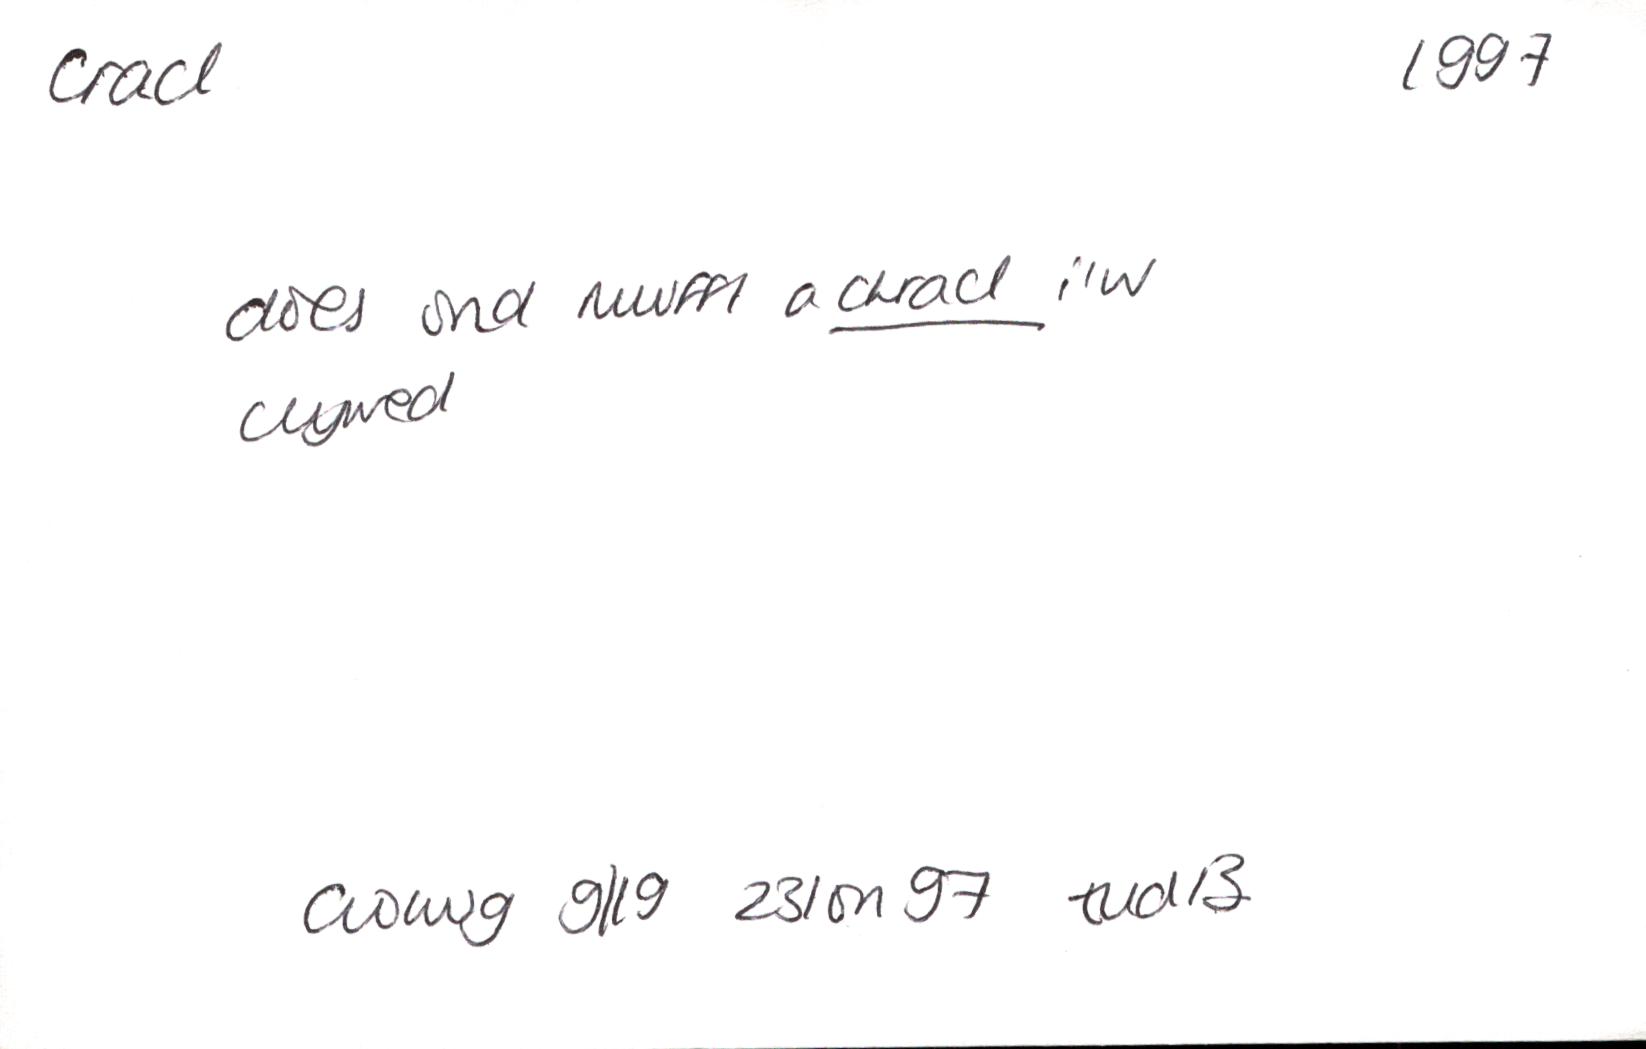 cracl 1997
does ond nwffl a chracl i'w
clywed
Golwg 9/19 23Ion97 tud13